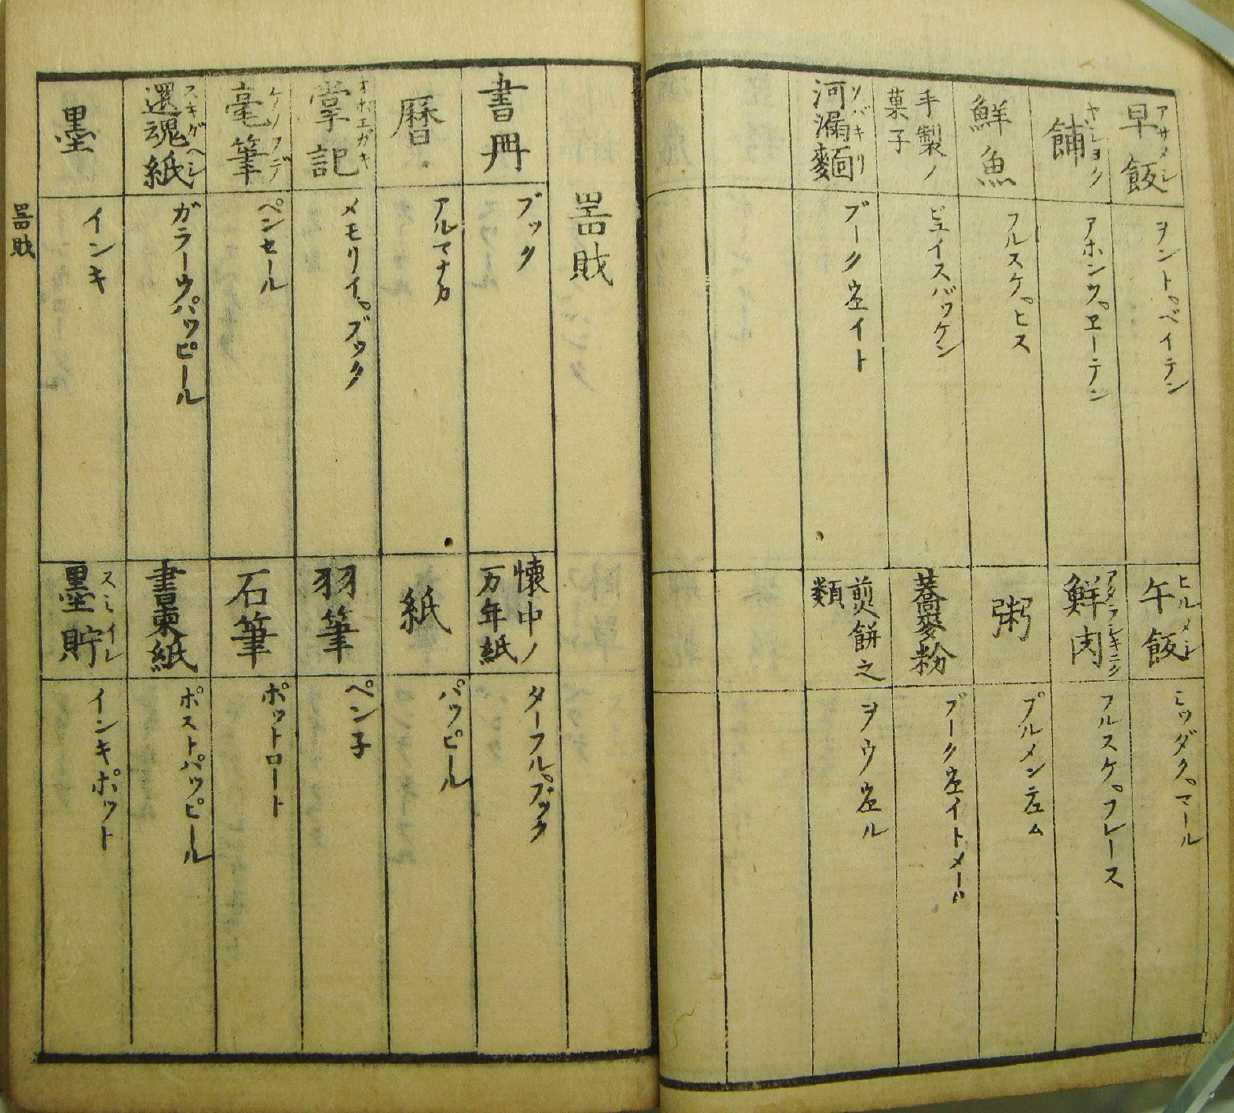 早飯 アサメシ
ヲントベイテン
午飯 ヒルメシ
ミッダクマール
餔 ヤショク
アホンツヱーテン
鮮肉
フルスケフレース
鮮魚
フルスケヒス
粥
ブルメンテュム
手製ノ菓子
ビュイスバッケン
蕎麥粉
ブークウェイトメール
河漏麵 ソバキリ
ブークウェイト
煎餅之類
ヲウウェル
噐財
書冊
ブック
懐中ノ万年紙
ターフルブック
暦
アルマナカ
紙
パッピール
掌記 オボエガキ
メモリイブック
羽筆
ペン子
毫筆 ケノフデ
ペンセール
石筆
ポットロート
還魂紙 スキガヘシ
ガラーウパッピール
書柬紙
ポストパッピール
墨
インキ
墨貯 スミイレ
インキポット
噐財